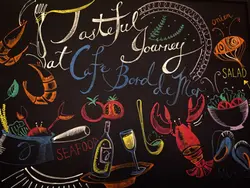 Tasteful
at Journey
Cafe Bord de Mer
onion
SALAD
SEAFOOD